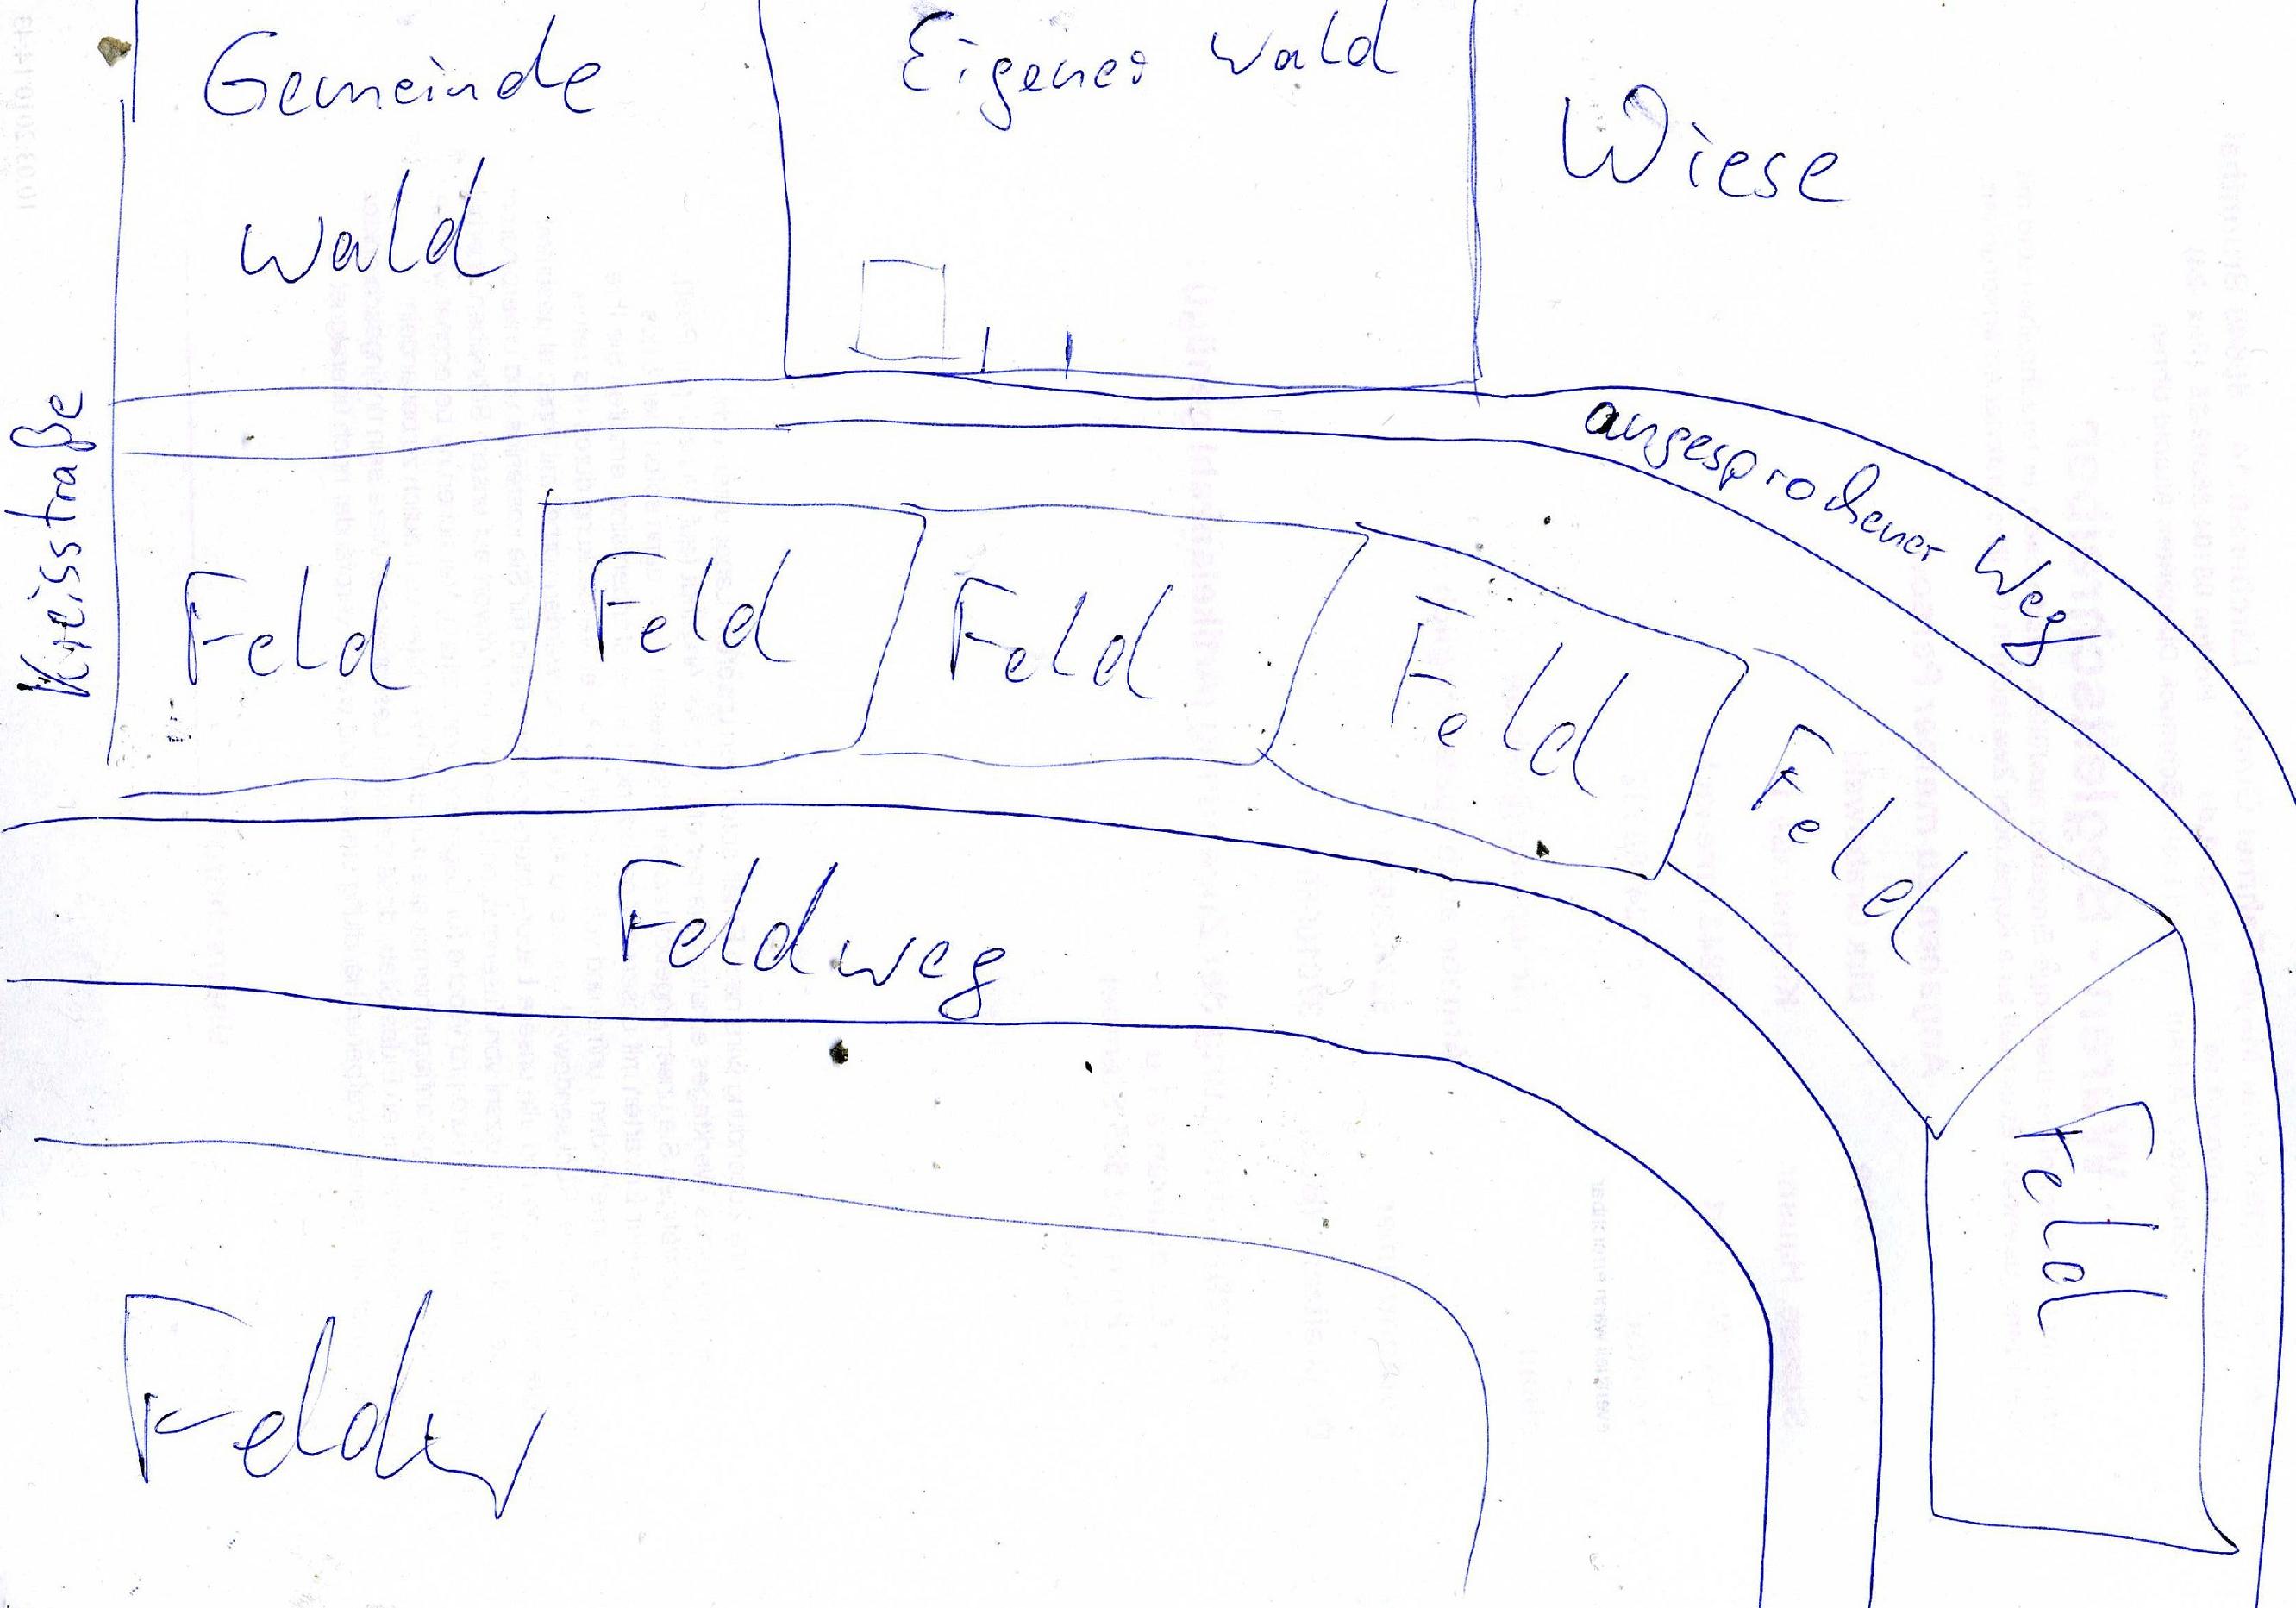 Gemeinde
Wald
Eigener Wald
Wiese
Kreisstraße
angesprochener Weg
Feld
Feld
Feld
Feld
Feld
Feld
Feldweg
Felder